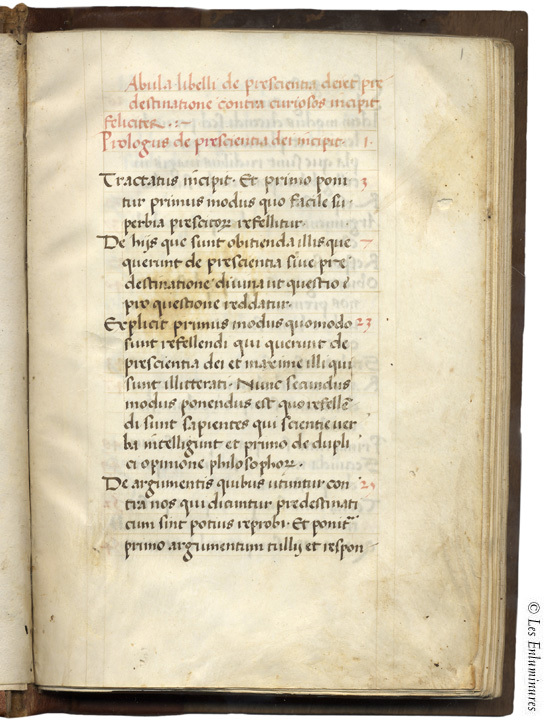 1
Abula libelli de prescientia dei et pre
destinatione contra curiosos incipit
feliciter.
Prologus de prescientia dei incipit. 1.
Tractatus incipit. Et primo poni 3
tur primus modus quo facile su
perbia prescitoꝝ refellitur.
De hijs que sunt obitienda illis que 7
querunt de prescientia siue pre
destinatione diuina ut questio
pro questione reddatur.
Explicit primus modus quomodo 23
sunt refellendi qui querunt de
prescientia dei et maxime illi qui
sunt illitterati. Nunc secundus
modus ponendus est quo refellē
di sunt sapientes qui scientie uer
ba intelligunt et primo de dupli
ci opinione philosophoꝝ.
De argumentis quibus utuntur con 25
tra nos qui dicuntur predestinati
cum sint potius reprobi. Et ponit
primo argumentum tullij et respon
© Les Enluminures